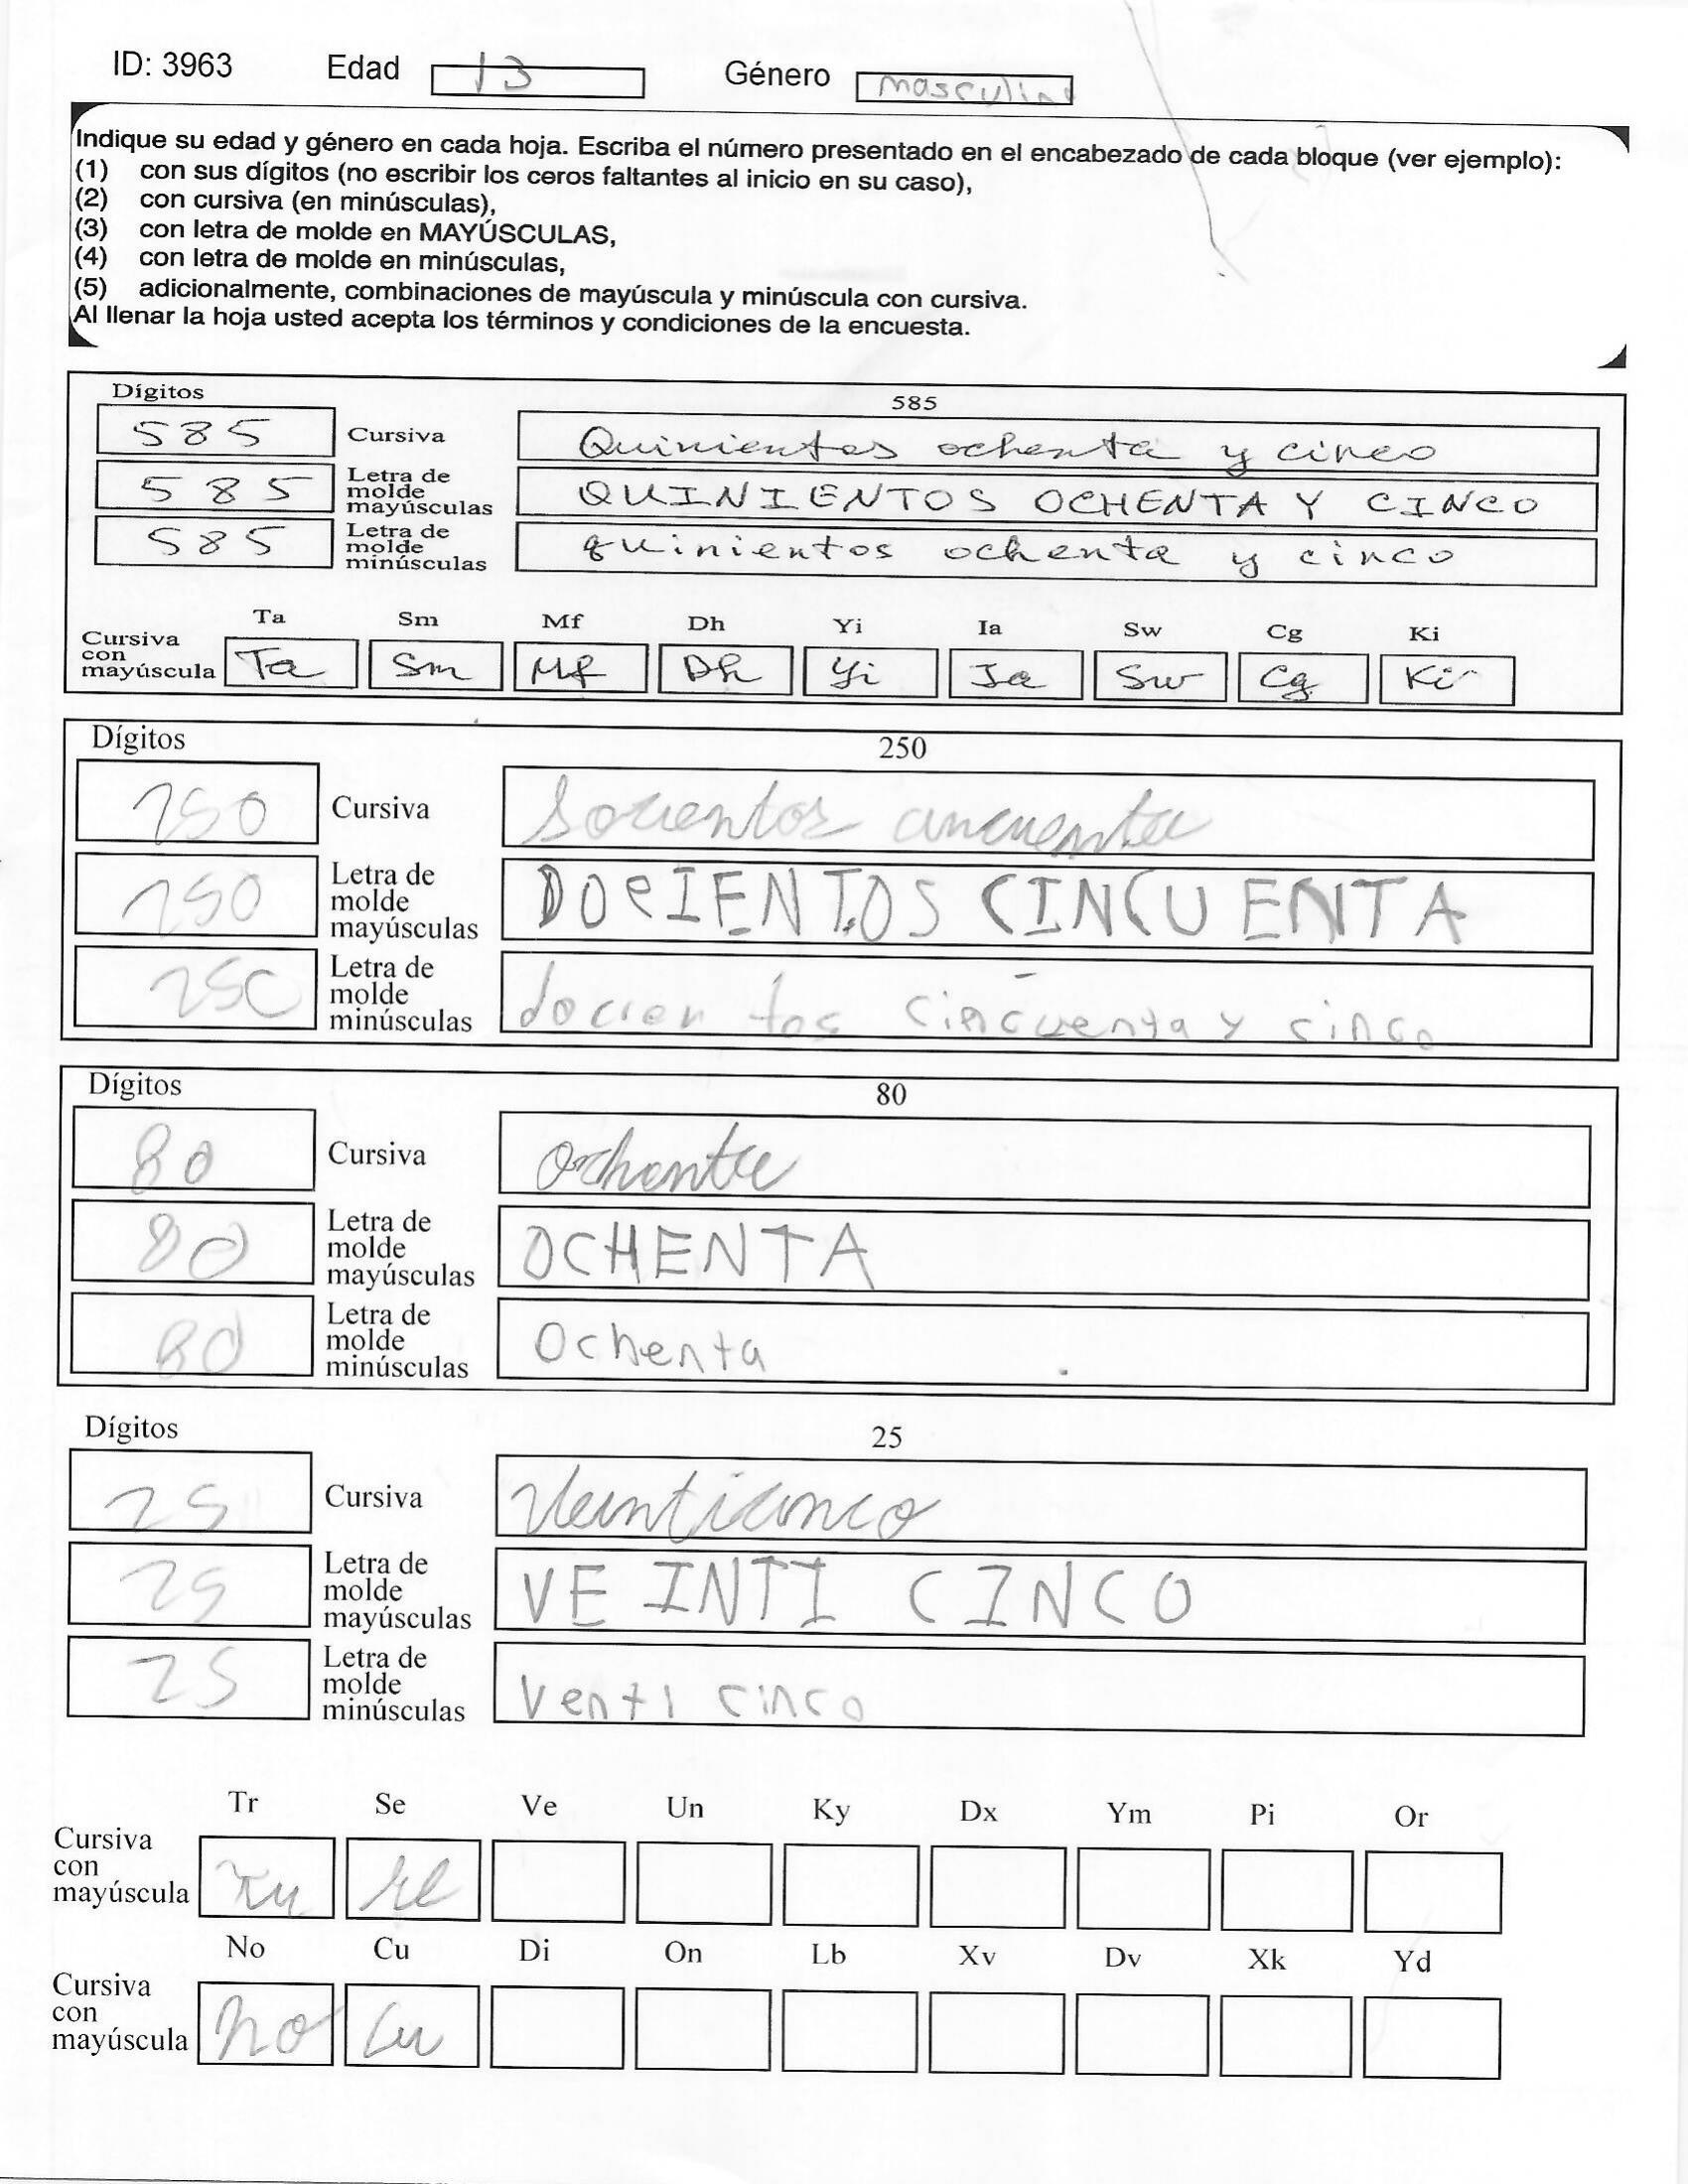 ID: 3963 Edad 13 Género masculino
Indique su edad y género en cada hoja. Escriba el número presentado en el encabezado de cada bloque (ver ejemplo):
(1) con sus dígitos (no escribir los ceros faltantes al inicio en su caso),
(2) con cursiva (en minúsculas),
(3) con letra de molde en MAYÚSCULAS,
(4) con letra de molde en minúsculas,
(5) adicionalmente, combinaciones de mayúscula y minúscula con cursiva.
Al llenar la hoja usted acepta los términos y condiciones de la encuesta.
Dígitos 585
585 Cursiva Quinientos ochenta y cinco
585 Letra de molde mayúsculas QUINIENTOS OCHENTA Y CINCO
585 Letra de molde minúsculas quinientos ochenta y cinco
Ta Sm Mf Dh Yi Ia Sw Cg Ki
Cursiva con mayúscula Ta Sm Mf Dh Yi Ia Sw Cg Ki
Dígitos 250
250 Cursiva cincuenta
250 Letra de molde mayúsculas DOCIENTOS CINCUENTA
250 Letra de molde minúsculas docientos cincuenta y cinco
Dígitos 80
80 Cursiva ochenta
80 Letra de molde mayúsculas OCHENTA
80 Letra de molde minúsculas Ochenta
Dígitos 25
25 Cursiva Veinticinco
25 Letra de molde mayúsculas VEINTI CINCO
25 Letra de molde minúsculas Venti cinco
Tr Se Ve Un Ky Dx Ym Pi Or
Cursiva con mayúscula Se
No Cu Di On Lb Xv Dv Xk Yd
Cursiva con mayúscula No Cu